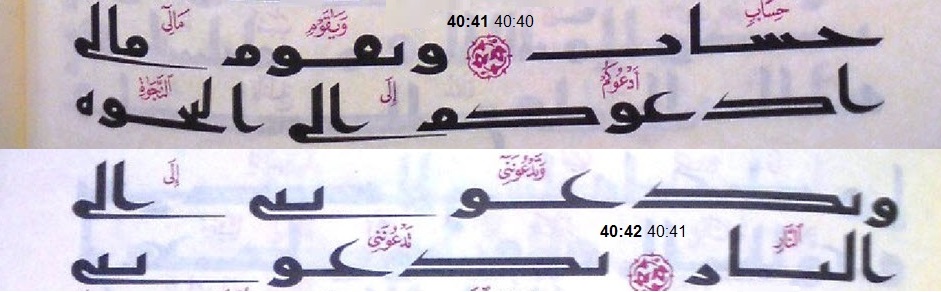 حِسَابٍ 40:40 40:41 وَيَٰقَوْمِ مَالِيٓ
حساب ويقوم مالى
أَدْعُوكُمْ إِلَى ٱلنَّجَوٰةِ
ادعوكم الى النجوه
وَتَدْعُونَنِيٓ إِلَى
وتدعوننى الى
ٱلنَّارِ 40:41 40:42 تَدْعُونَنِي
النار تدعوننى